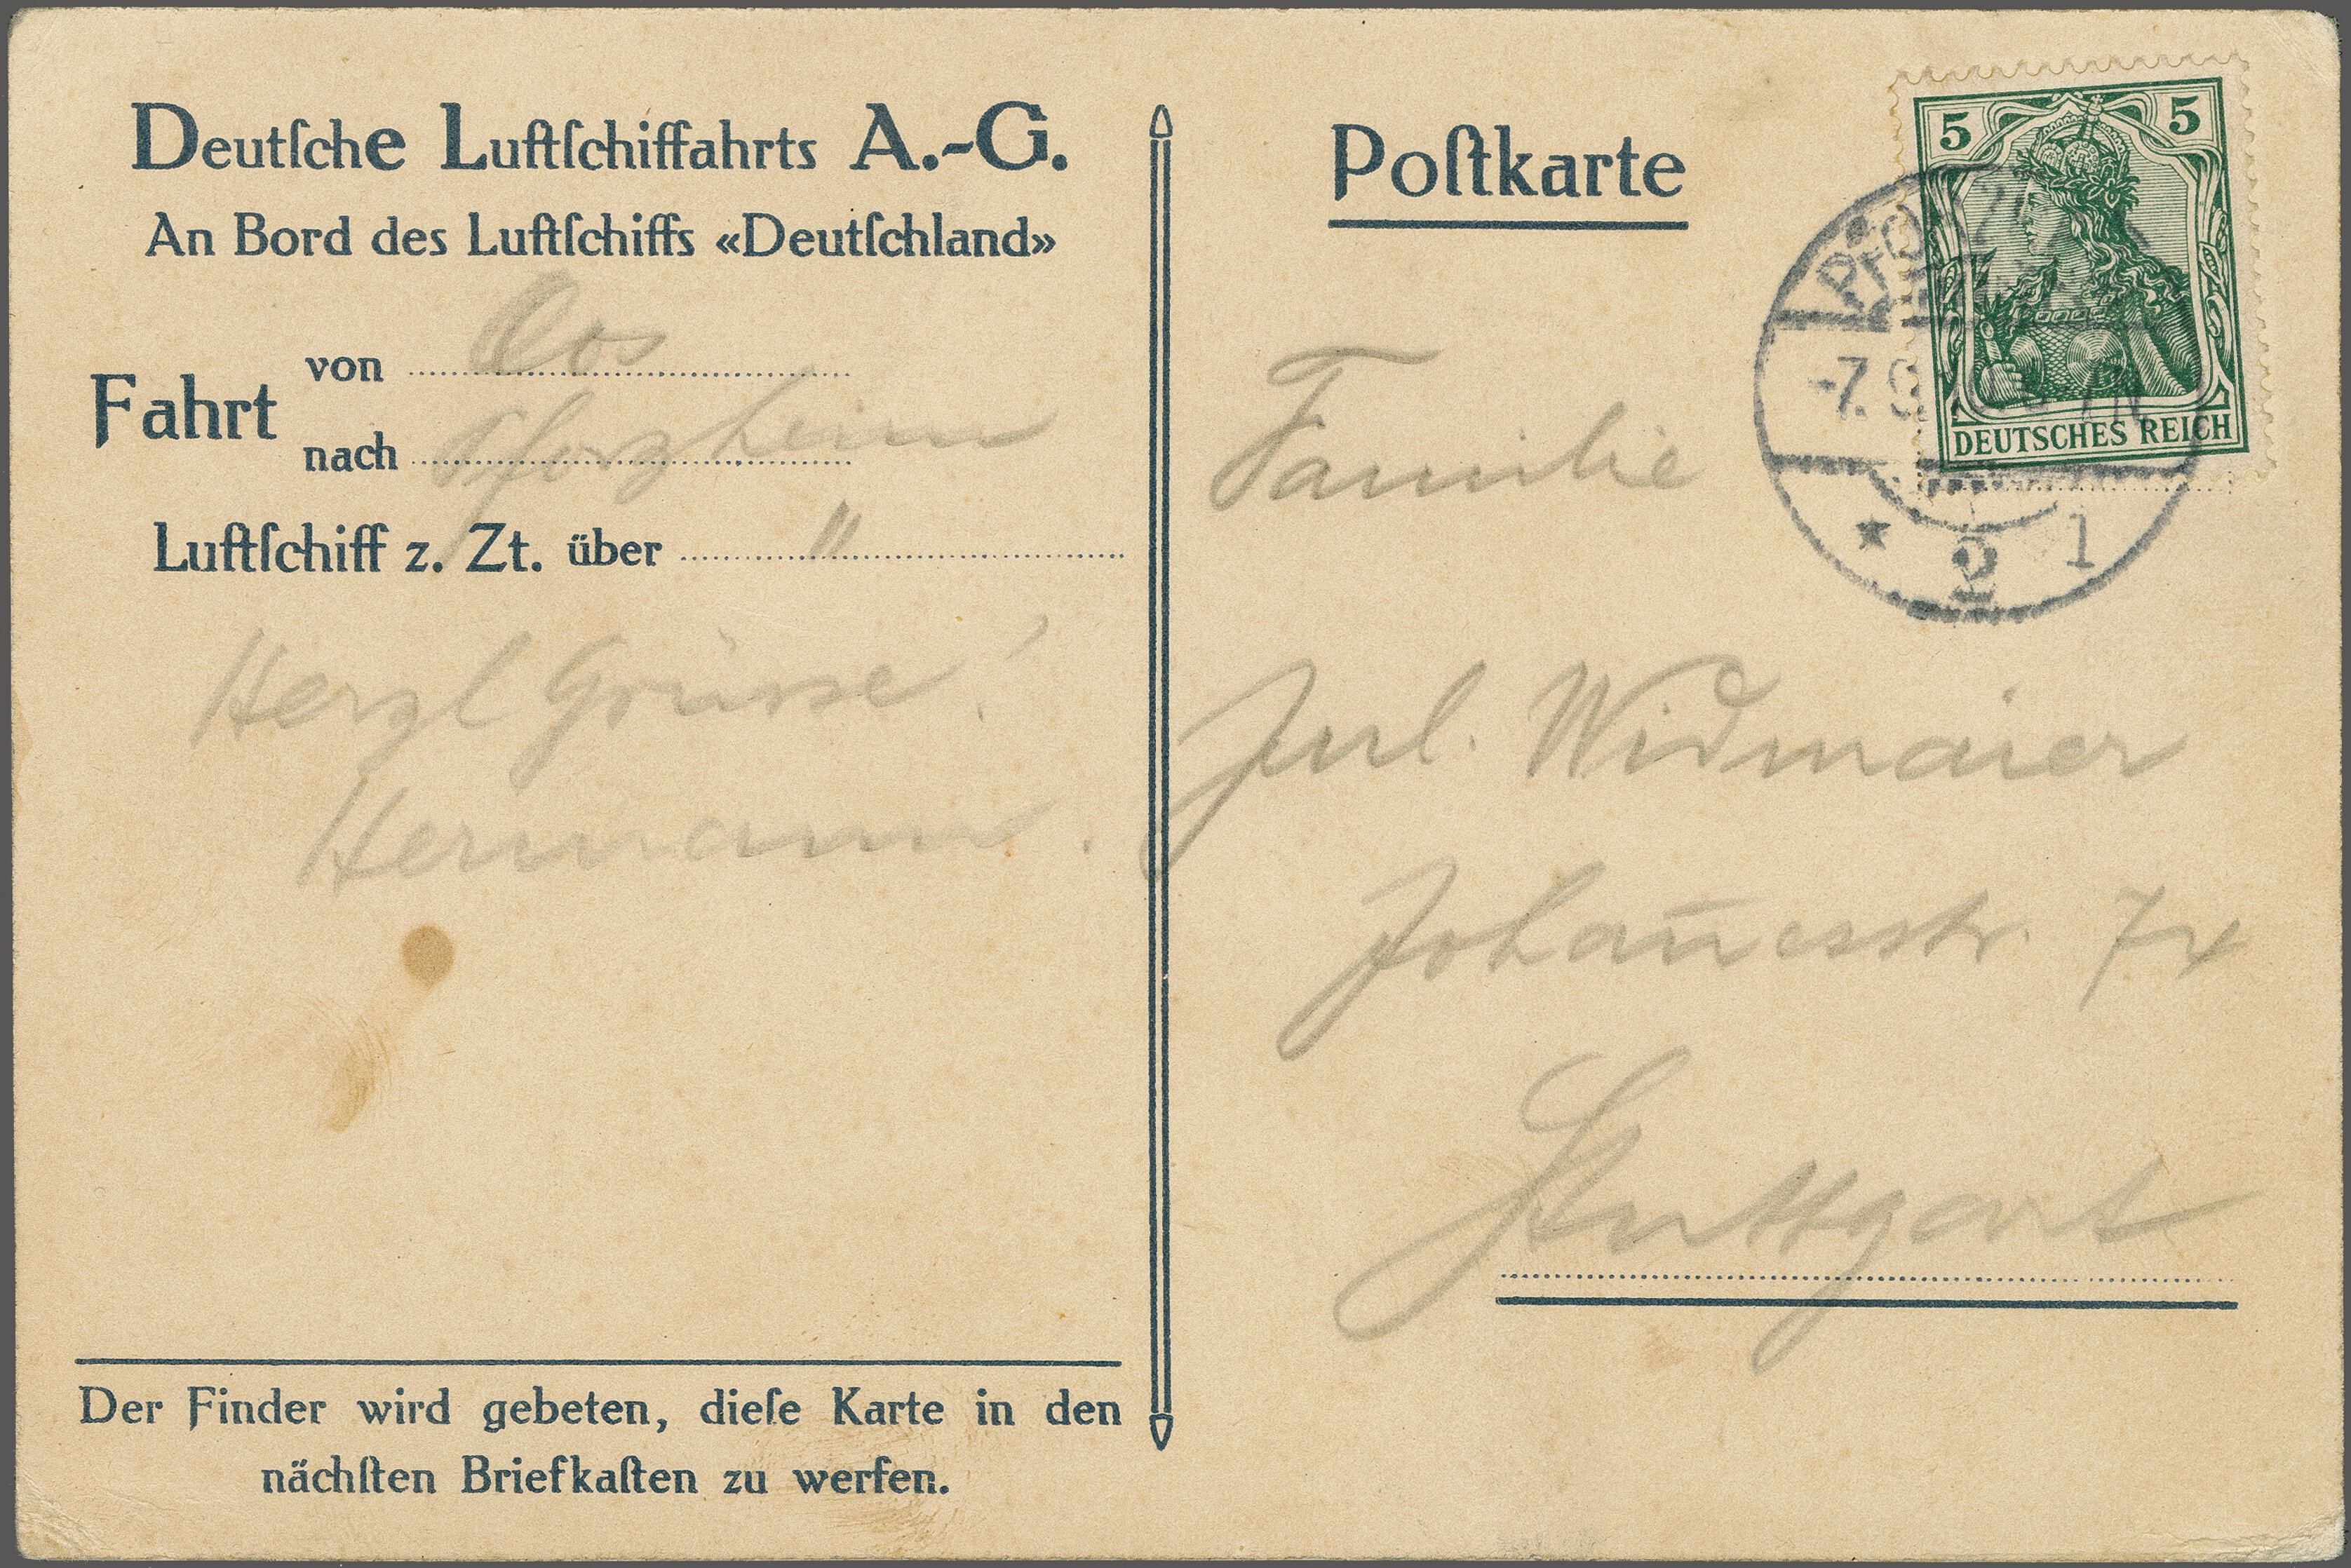 Deutſche Luftſchiffahrts A.-G.
An Bord des Luftſchiffs «Deutſchland»
Fahrt von Oos
nach Pforzheim
Luftſchiff z. Zt. über "
Herzl Grüsse!
Hermann.
Der Finder wird gebeten, dieſe Karte in den
nächſten Briefkaſten zu werfen.
Poſtkarte
5 5
DEUTSCHES REICH
-7. 9
* 2 1
Familie
Jul. Widmaier
Johan̄esstr.
Stuttgart